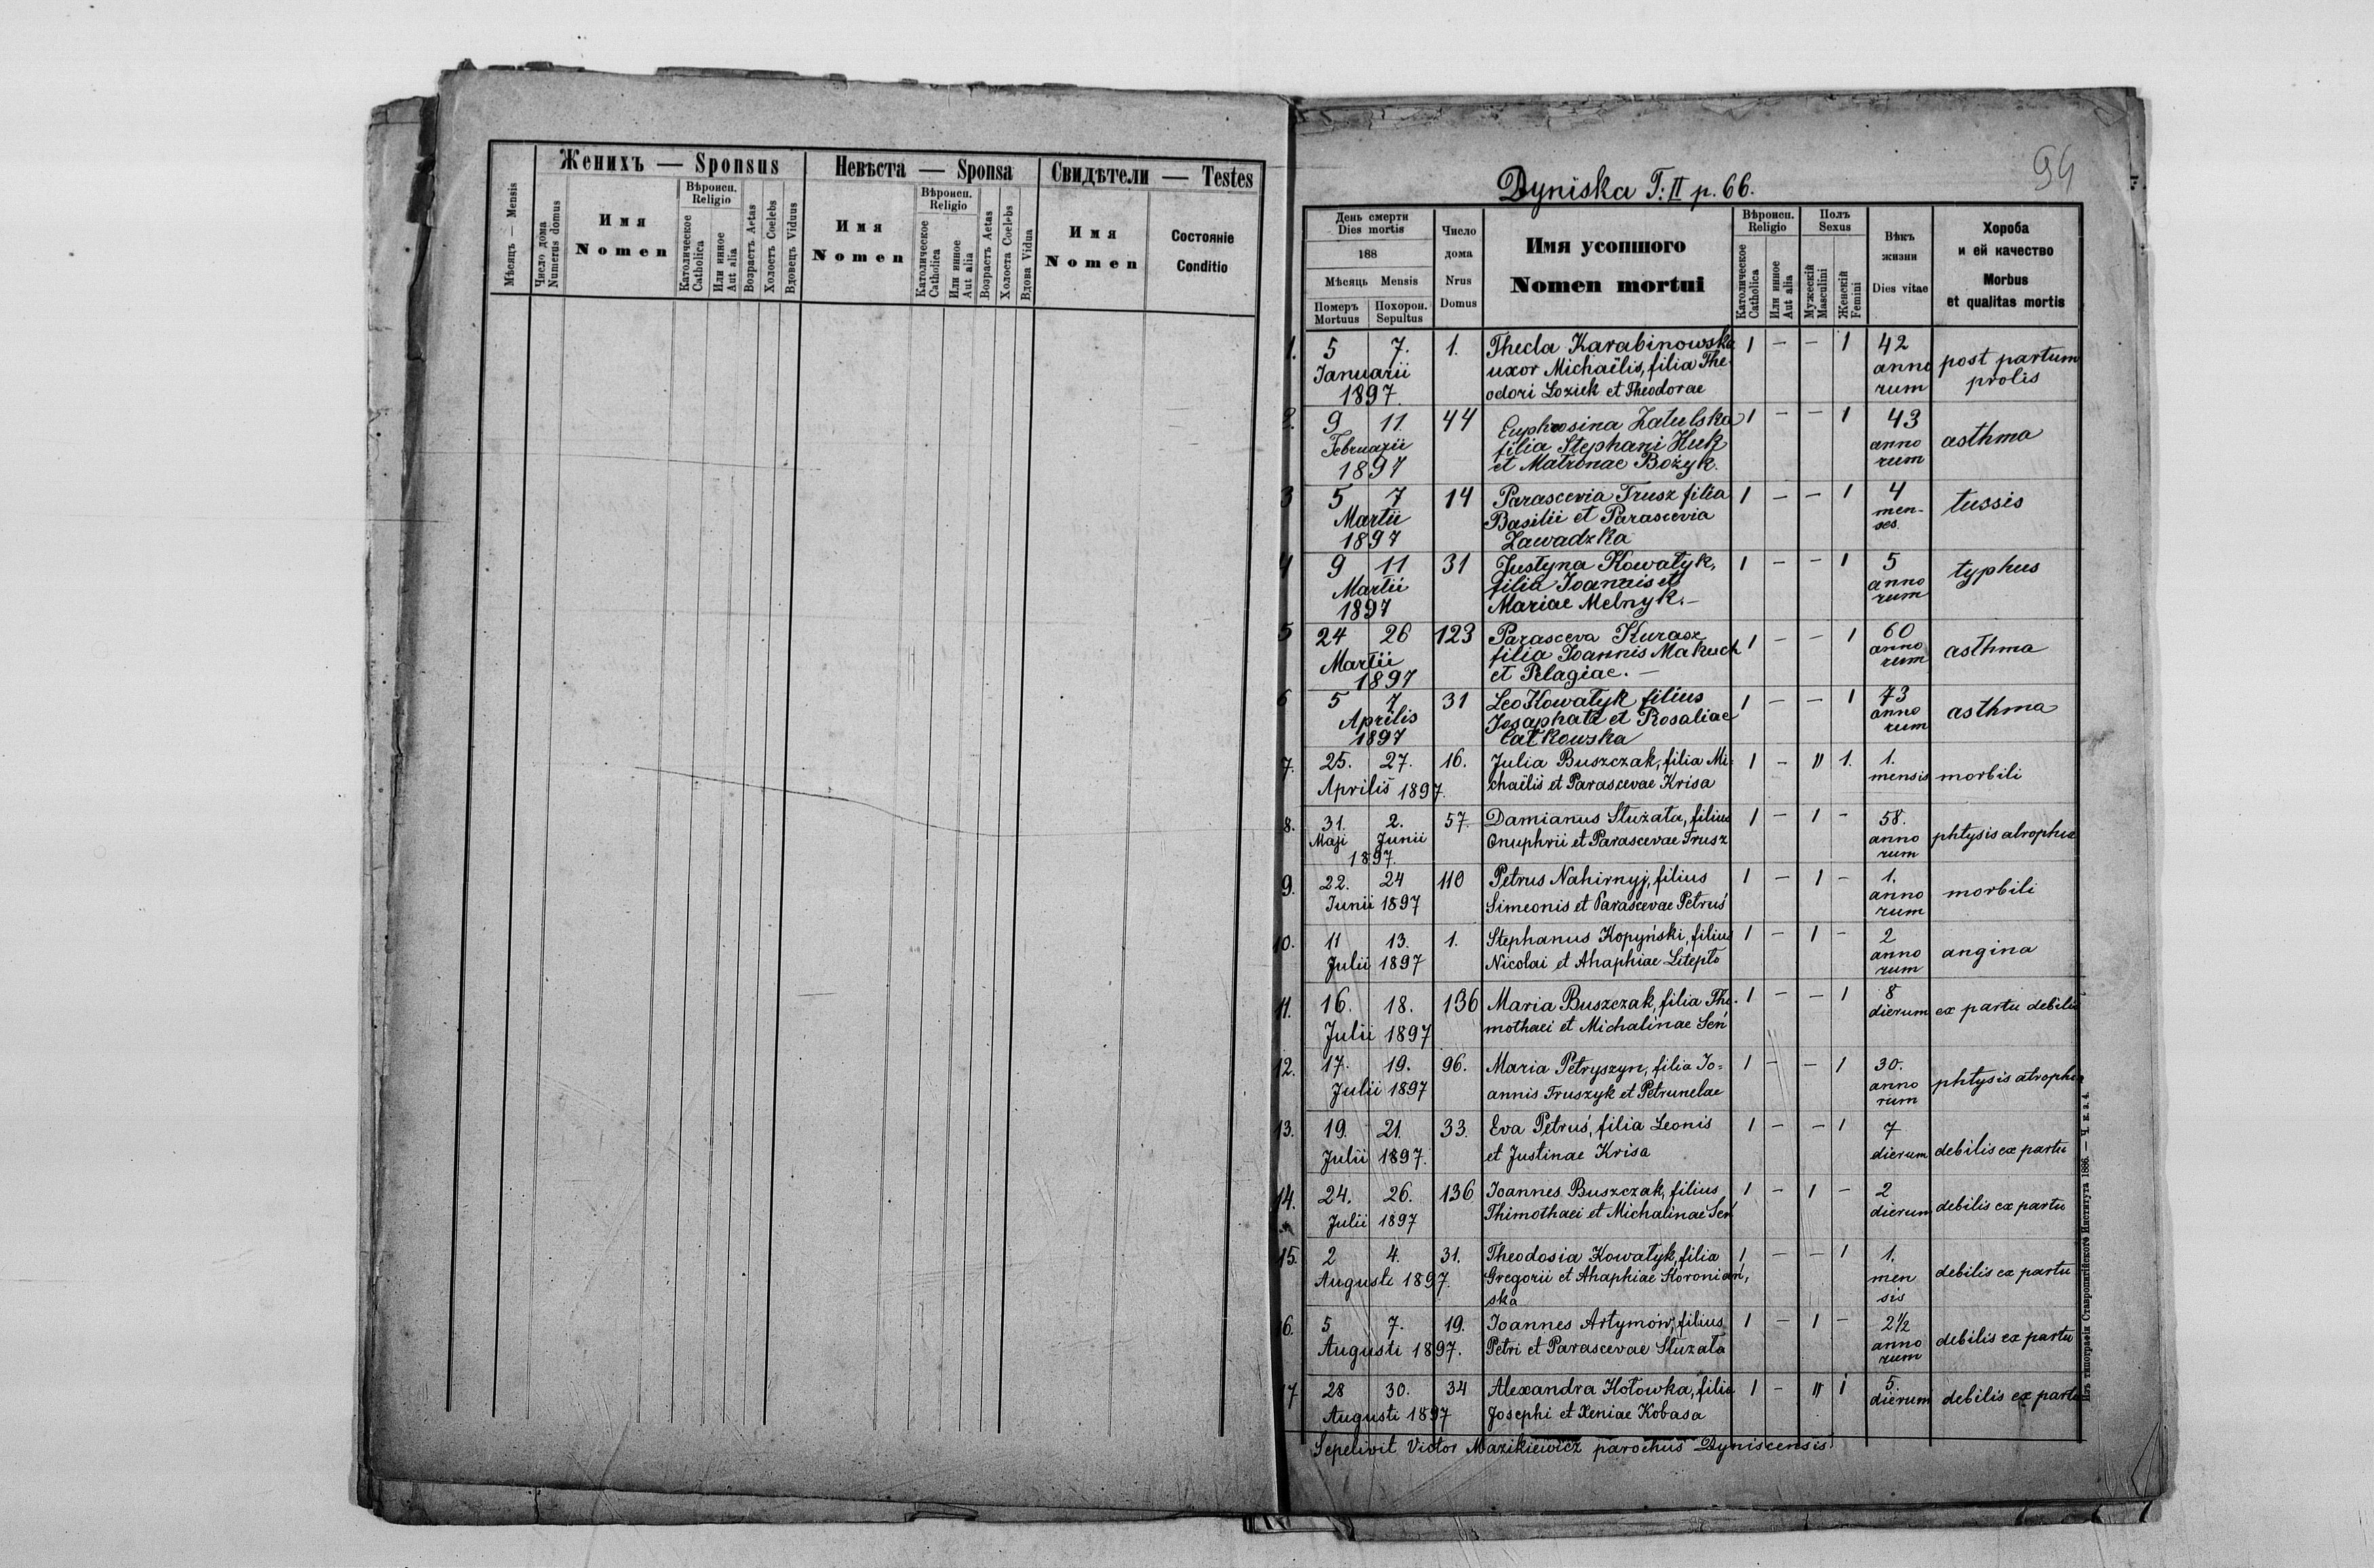 Женихъ — Sponsus
Невѣста — Sponsa
Свидѣтели — Testes
Мѣсяцъ — Mensis
Число дома
Numerus domus
Имя
Nomen
Вѣроисп.
Religio
Католическое
Catholica
Или инное
Aut alia
Возрастъ Aetas
Холостъ Coelebs
Вдовецъ Viduus
Имя
Nomen
Вѣроисп.
Religio
Католическое
Catholica
Или инное
Aut alia
Возрастъ Aetas
Холоста Coelebs
Вдова Vidua
Имя
Nomen
Состояніе
Conditio
94
Dyniska T: II p. 66.
День смерти
Dies mortis
188
Мѣсяць Mensis
Померъ
Mortuus
Похорон.
Sepultus
Число
дома
Nrus
Domus
Имя усопшого
Nomen mortui
Вѣроисп.
Religio
Католическое
Catholica
Или инное
Aut alia
Полъ
Sexus
Мужескій
Masculini
Женскій
Femini
Вѣкъ
жизни
Dies vitae
Хороба
и ей качество
Morbus
et qualitas mortis
1. 5 7. 1. Thecla Karabinowska 1 — — 1 42
Januarii uxor Michaëlis, filia The anno post partum
1897. odori Loziek et Theodorae rum prolis
2. 9 11. 44 Euphrosina Zatulska 1 — — 1 43
Februarii filia Stephani Huk anno asthma
1897 et Matronae Bożyk. rum
3 5 7 14 Parascevia Trusz filia 1 — — 1 4
Martii Basilii et Parascevia men- tussis
1897 Zawadzka ses.
4 9 11 31 Justyna Kowałyk, 1 — — 1 5
Martii filia Joannis et anno typhus
1897 Mariae Melnyk. — rum
5 24 26 123 Parasceva Kurasz 1 — — 1 60
Martii filia Joannis Makuch anno asthma
1897 et Pelagiae. — rum
6 5 7 31 Leo Kowałyk filius 1 — — 1 73
Aprilis Josaphati et Rosaliae anno asthma
1897 rum
7. 25. 27. 16. Julia Buszczak, filia Mi= 1 — 11 1. 1.
Aprilis 1897. chaëlis et Parascevae Krisa mensis morbili
8. 31. 2. 57. Damianus Słuzała, filius 1 — 1 — 58.
Maji Junii Onuphrii et Parascevae Trusz anno phtysis atrophia
1897. rum
9. 22. 24 110 Petrus Nahirnyj, filius 1 — 1 — 1.
Junii 1897 Simeonis et Parascevae Petruś anno morbili
rum
10. 11 13. 1. Stephanus Kopyński, filius 1 — 1 — 2
Julii 1897 Nicolai et Ahaphiae anno angina
rum
11. 16. 18. 136 Maria Buszczak, filia Thi. 1 — — 1 8
Julii 1897 mothaei et Michalinae Seń dierum ex partu debilis
12. 17. 19. 96. Maria Petryszyn, filia Jo= 1 — — 1 30.
Julii 1897 annis Truszyk et Petrunelae anno phtysis atrophia
rum
13. 19. 21. 33. Eva Petruś, filia Leonis 1 — — 1 7
Julii 1897. et Justinae Krisa dierum debilis ex partu
14. 24. 26. 136 Joannes Buszczak, filius 1 — 1 — 2
Julii 1897 Thimothaei et Michalinae Seń dierum debilis ex partu
15. 2 4. 31. Theodosia Kowałyk, filia 1 — — 1 1.
Augusti 1897. Gregorii et Ahaphiae men debilis ex partu
ska sis
16. 5 7. 19. Joannes Artymów, filius 1 — 1 — 2½
Augusti 1897. Petri et Parascevae Słuzała anno debilis ex partu
rum
17 28 30. 34 Alexandra Hołowka, filia 1 — 11 1 5.
Augusti 1897 Josephi et Xeniae Kobasa dierum debilis ex partu
Sepelivit Victor Mazikiewicz parochus Dyniscensis
Изъ типографіи Ставропигійского Института 1886. — Ч. к. з. 4.